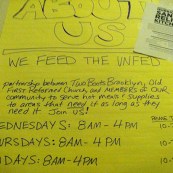 ABOUT
US
WE FEED THE UNFED
partnership between Two Boots Brooklyn, Old
First Reformed Church, and MEMBERS OF OUR
community to serve hot meals & supplies
to areas that need it as long as they
need it. Join us!
WEDNESDAYS: 8AM-4PM
THURSDAYS: 8AM-4PM
FRIDAYS: 8AM-4PM
KITCHEN